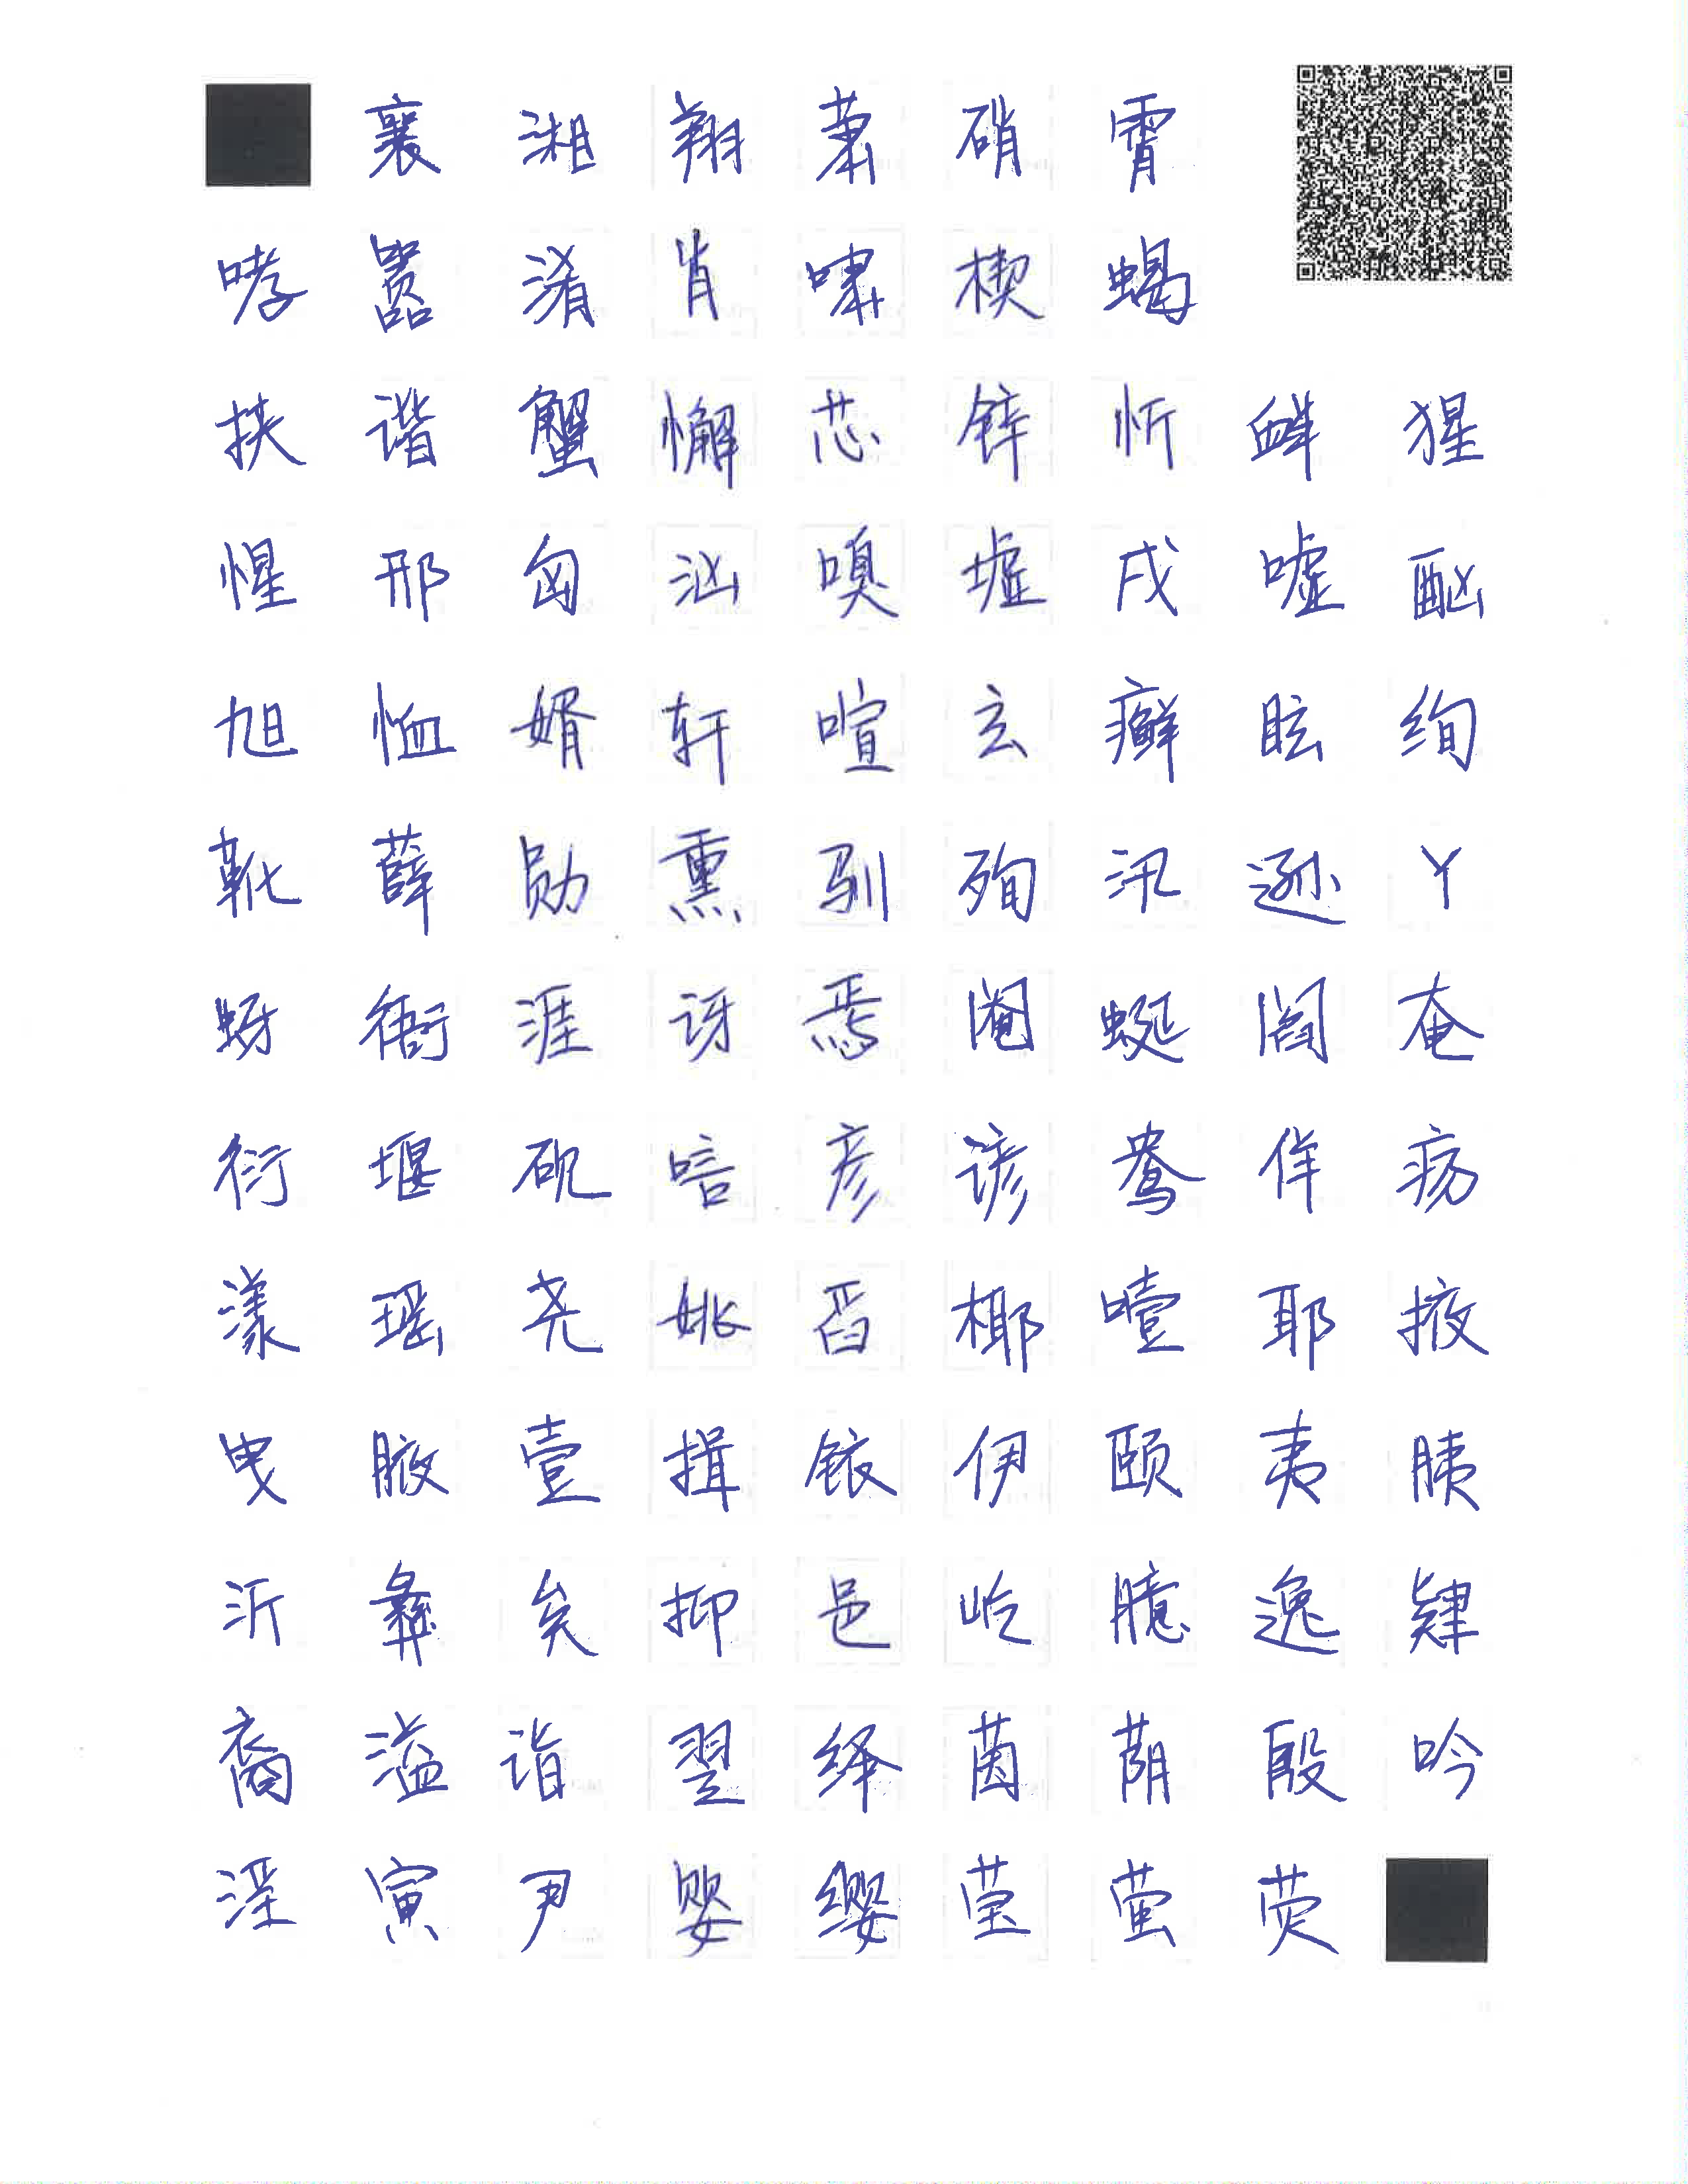 襄 湘 翔 萧 硝 霄
哮 嚣 淆 肖 啸 楔 蝎
挟 谐 蟹 懈 芯 锌 忻 衅 猩
惺 邢 匈 汹 嗅 墟 戌 嘘 酗
旭 恤 婿 轩 喧 玄 癣 眩 绚
靴 薛 勋 熏 驯 殉 汛 逊 丫
蚜 衙 涯 讶 焉 阉 蜒 阎 奄
衍 堰 砚 唁 彦 谚 鸯 佯 疡
漾 瑶 尧 姚 舀 椰 噎 耶 掖
曳 腋 壹 揖 铱 伊 颐 夷 胰
沂 彝 矣 抑 邑 屹 臆 逸 肄
裔 溢 诣 翌 绎 茵 荫 殷 吟
淫 寅 尹 婴 缨 莹 萤 荧